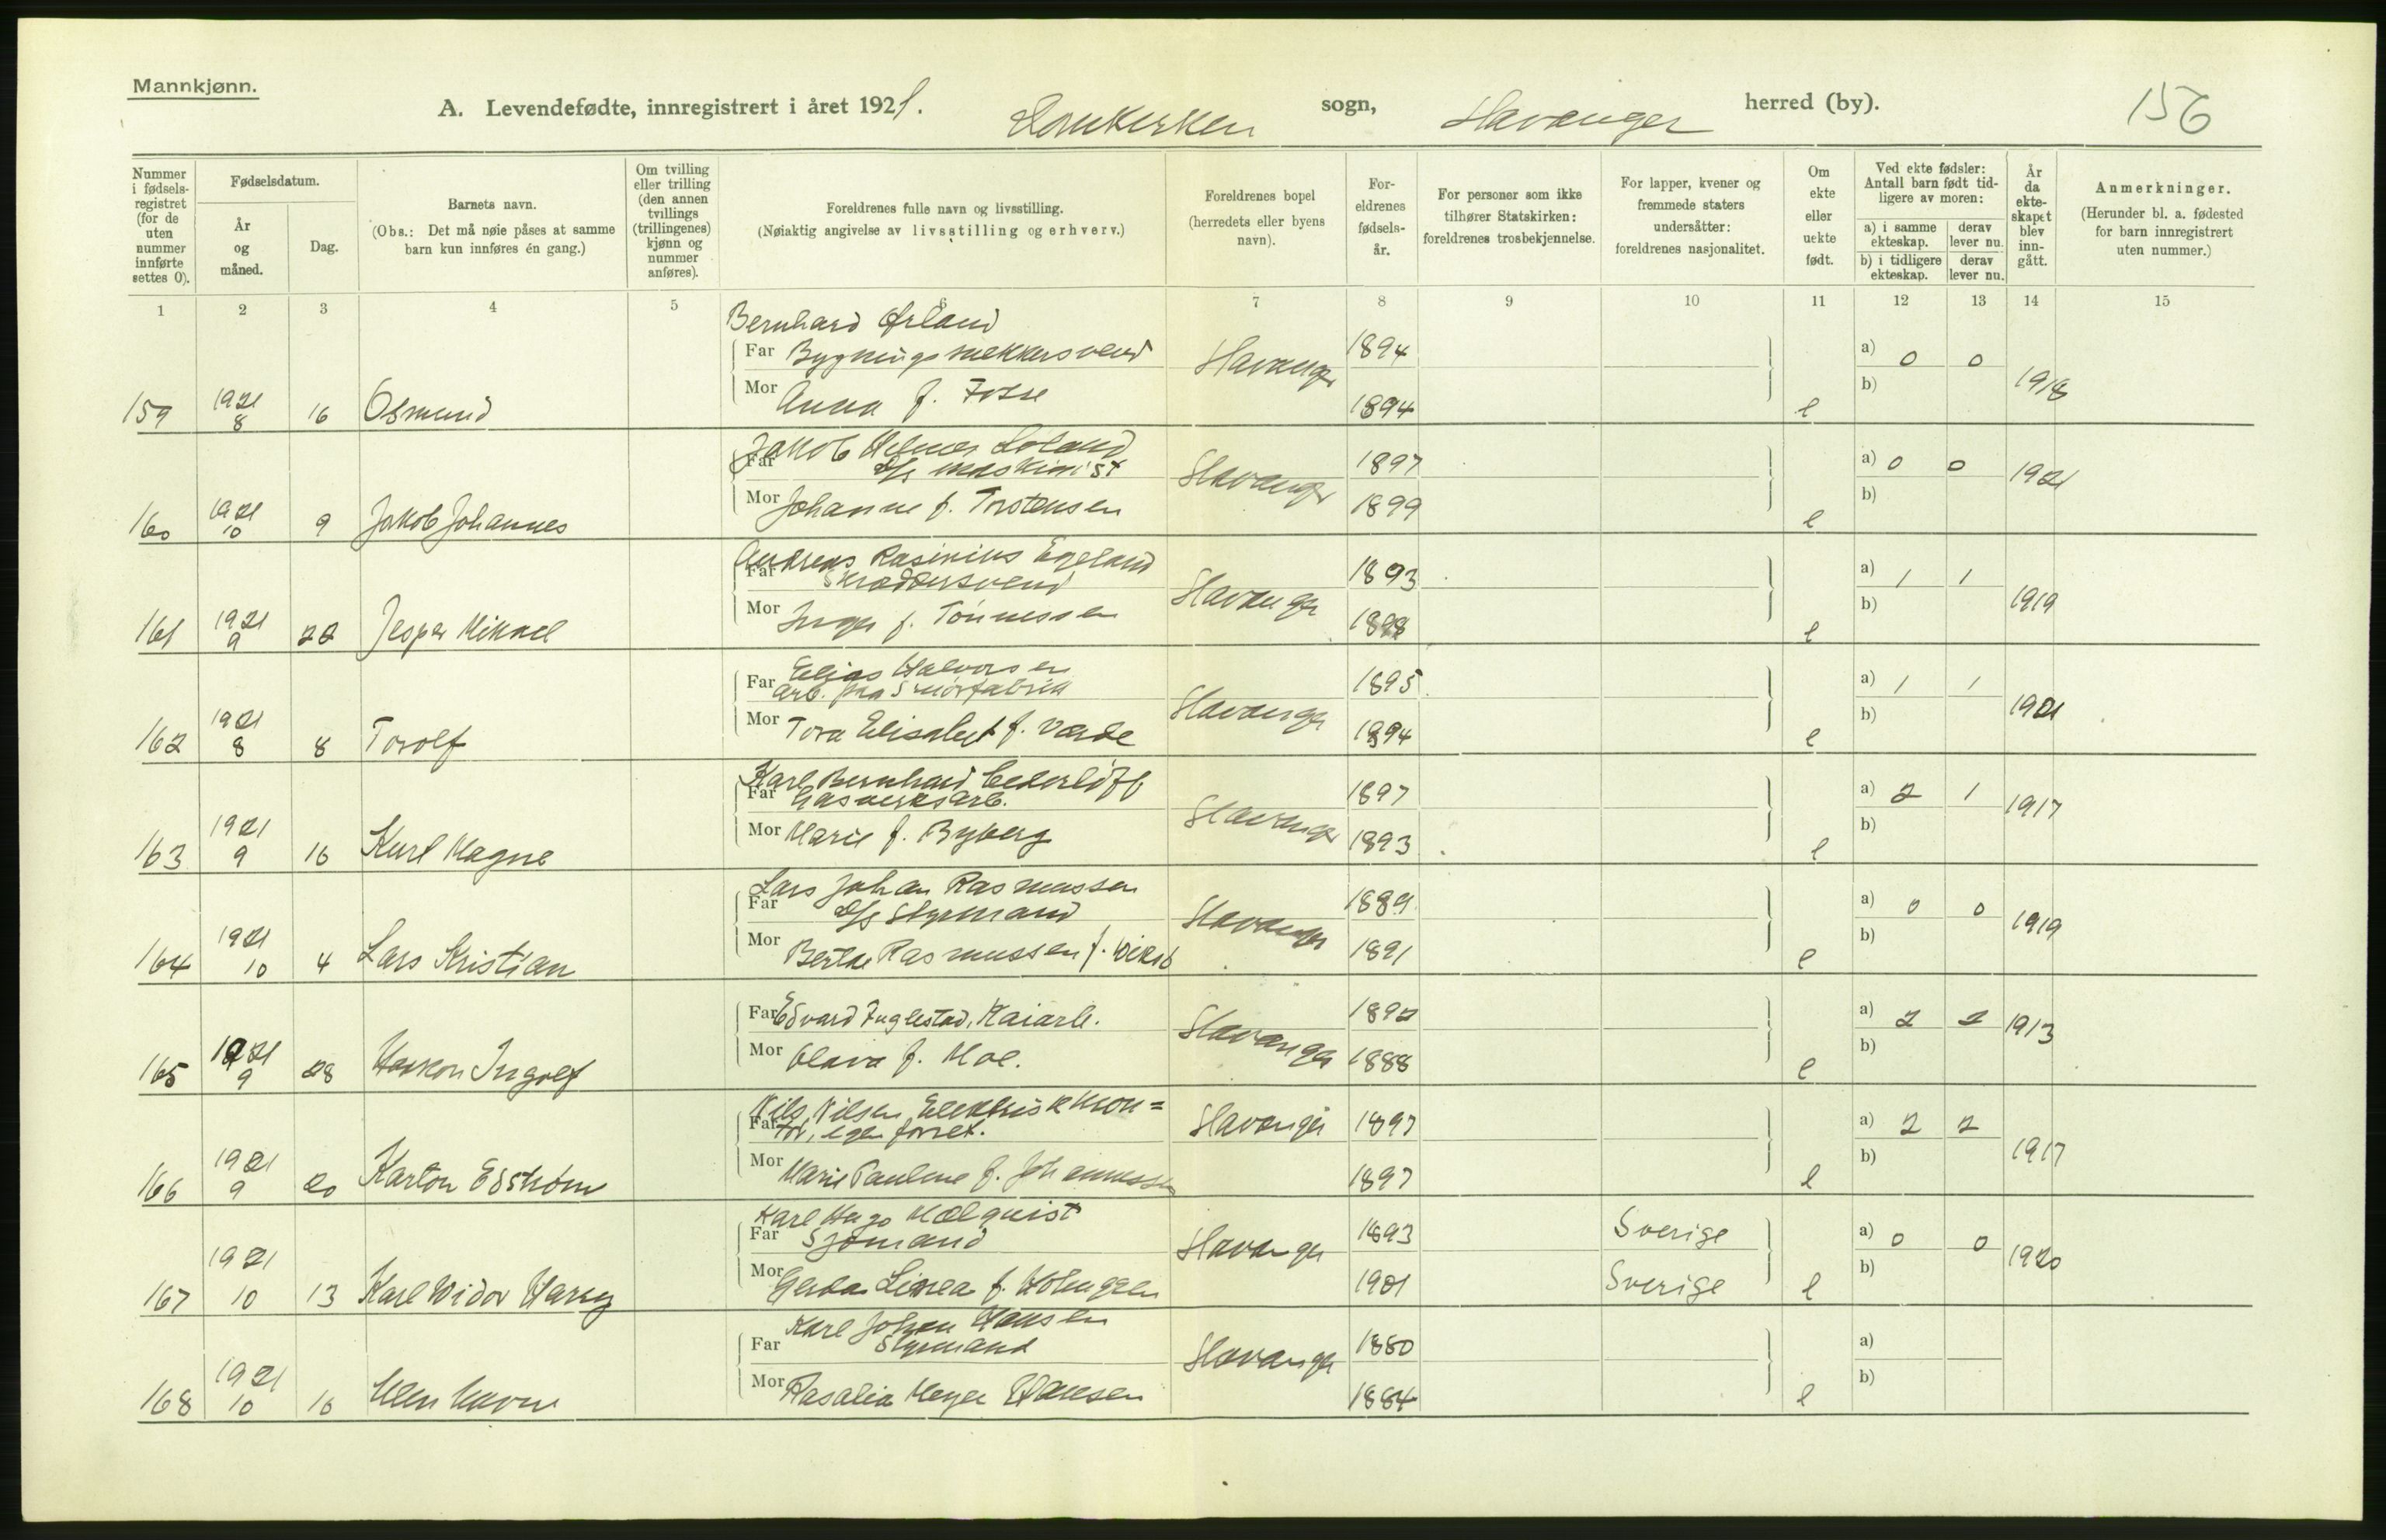 Mannkjønn.
A. Levendefødte, innregistrert i året 1921. Domkirken sogn, Stavanger herred (by). 156
Nummer i fødsels-registret (for de uten nummer innførte settes 0).
Fødselsdatum.
År og måned.
Dag.
Barnets navn.
(Obs.: Det må nøie påses at samme barn kun innføres én gang.)
Om tvilling eller trilling (den annen tvillings (trillingenes) kjønn og nummer anføres).
Foreldrenes fulle navn og livsstilling.
(Nøiaktig angivelse av livsstilling og erhverv.)
Foreldrenes bopel (herredets eller byens navn).
For-eldrenes fødsels-år.
For personer som ikke tilhører Statskirken: foreldrenes trosbekjennelse.
For lapper, kvener og fremmede staters undersåtter: foreldrenes nasjonalitet.
Om ekte eller uekte født.
Ved ekte fødsler: Antall barn født tid-ligere av moren:
a) i samme ekteskap. derav lever nu.
b) i tidligere ekteskap. derav lever nu.
År da ekte-skapet blev inn-gått.
Anmerkninger.
(Herunder bl. a. fødested for barn innregistrert uten nummer.)
1 2 3 4 5 6 7 8 9 10 11 12 13 14 15
Bernhard Ørland
Far Bygningssnekkersvend Stavanger 1894 a) 0 0
Mor Anna f. Fosse 1894 b) 1918
159 1921 8 16 Osmund e
Jakob Helmer Loland
Far D/s maskinist Stavanger 1897 a) 0 0 1921
Mor Johanne f. Torstensen 1899 b)
160 1921 10 9 Jakob Johannes e
Andreas Rasinius Egeland
Far Skræddersvend Stavanger 1893 a) 1 1
Mor Inger f. Tönnessen 1898 b) 1919
161 1921 9 22 Jesper Mikael e
Elias Halvorsen
Far arb. paa Smörfabrik Stavanger 1895 a) 1 1
Mor Tora Elisabet f. Varde 1894 b) 1921
162 1921 8 8 Torolf e
Karl Bernhard Cederlöff
Far Gasverksarb. Stavanger 1897 a) 2 1 1917
Mor Marie f. Byberg 1893 b)
163 1921 9 16 Kurt Magne e
Lars Johan Rasmussen
Far D/s Styrmand Stavanger 1889 a) 0 0 1919
Mor Berthe Rasmussen f. 1891 b)
164 1921 10 4 Lars Kristian e
Far Edvard Fuglestad, Kaiarb. Stavanger 1892 a) 2 2 1913
Mor Olava f. Moe. 1888 b)
165 1921 9 28 Haakon Ingolf e
Nils Nilsen, Elektrisk mon=
Far tør, egen forret. Stavanger 1897 a) 2 2
Mor Marie Pauline f. Johannessen 1897 b) 1917
166 1921 9 20 Karton Edström e
Karl Hugo Malquist
Far Sjømand Stavanger 1893 Sverige a) 0 0 1920
Mor Gerda Linnea f. Holmgren 1901 Sverige b)
167 1921 10 13 Karl Widor Harry e
Karl Johan Hansen
Far Styrmand Stavanger 1880 a)
Mor Rasalia Meyer Hansen 1884 b)
168 1921 10 16 Uten Navn e